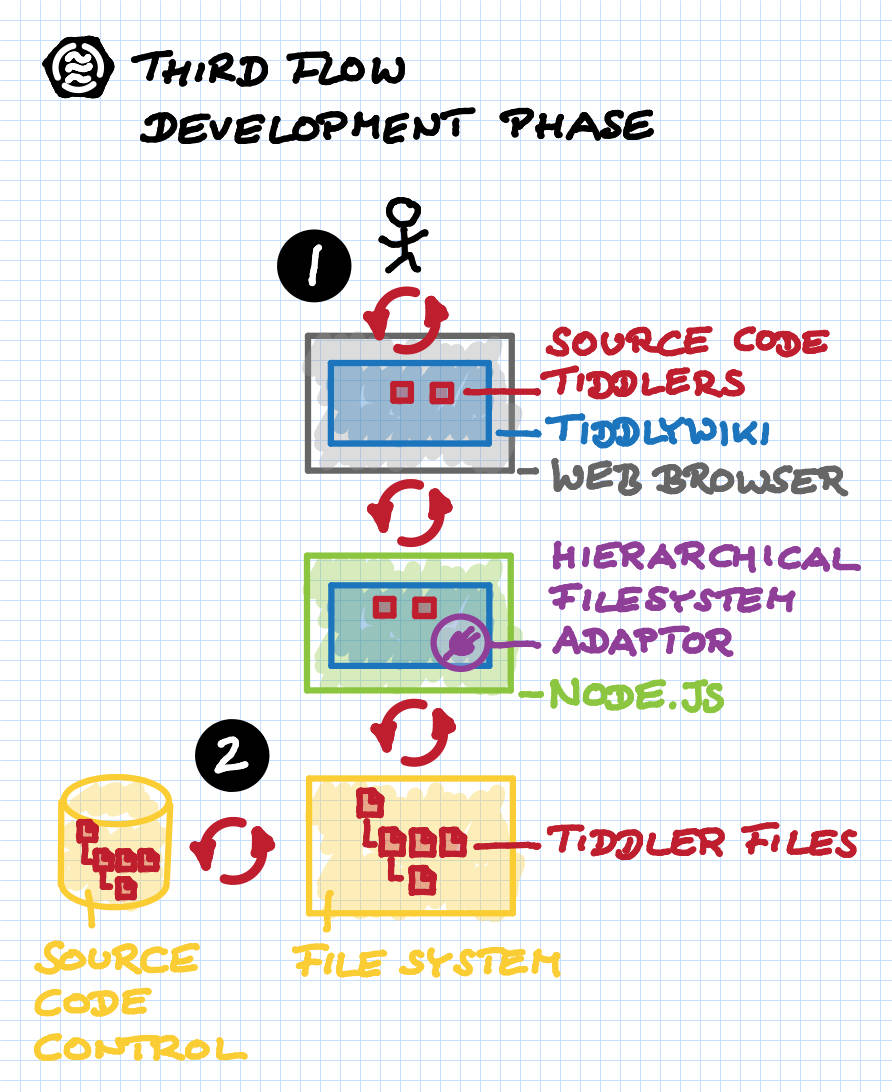 THIRD FLOW
DEVELOPMENT PHASE
1
SOURCE CODE
TIDDLERS
TIDDLYWIKI
WEB BROWSER
HIERARCHICAL
FILESYSTEM
ADAPTOR
NODE.JS
2
TIDDLER FILES
SOURCE
CODE
CONTROL
FILE SYSTEM